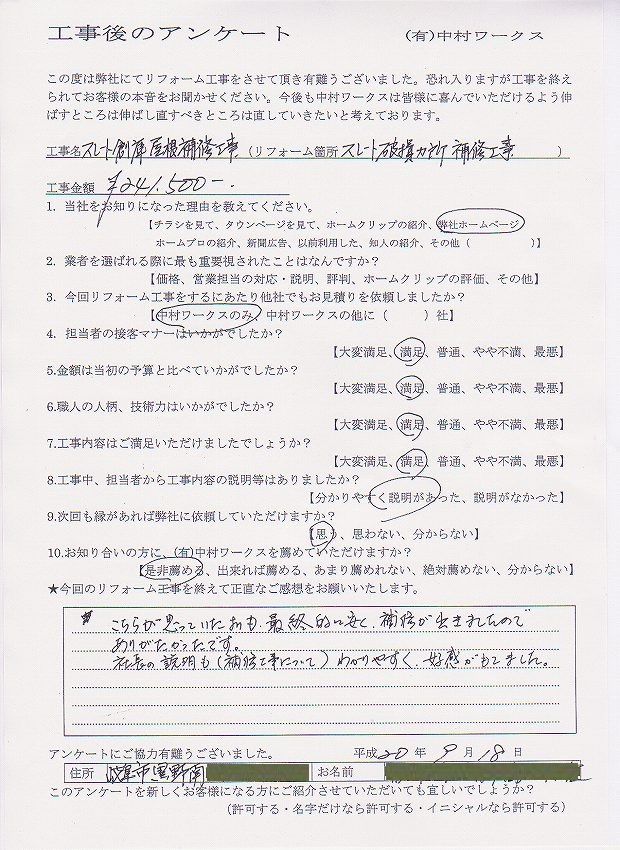 工事後のアンケート (有)中村ワークス
この度は弊社にてリフォーム工事をさせて頂き有難うございました。恐れ入りますが工事を終え
られてお客様の本音をお聞かせください。今後も中村ワークスは皆様に喜んでいただけるよう伸
ばすところは伸ばし直すべきところは直していきたいと考えております。
工事名スレート倉庫屋根補修工事 (リフォーム箇所 スレート破損カ所 補修工事 )
工事金額 ¥241,500-.
1. 当社をお知りになった理由を教えてください。
【チラシを見て、タウンページを見て、ホームクリップの紹介、弊社ホームページ
ホームプロの紹介、新聞広告、以前利用した、知人の紹介、その他( )】
2. 業者を選ばれる際に最も重要視されたことはなんですか?
【価格、営業担当の対応・説明、評判、ホームクリップの評価、その他】
3. 今回リフォーム工事をするにあたり他社でもお見積りを依頼しましたか?
【中村ワークスのみ、中村ワークスの他に( )社】
4. 担当者の接客マナーはいかがでしたか?
【大変満足、満足、普通、やや不満、最悪】
5.金額は当初の予算と比べていかがでしたか?
【大変満足、満足、普通、やや不満、最悪】
6.職人の人柄、技術力はいかがでしたか?
【大変満足、満足、普通、やや不満、最悪】
7.工事内容はご満足いただけましたでしょうか?
【大変満足、満足、普通、やや不満、最悪】
8.工事中、担当者から工事内容の説明等はありましたか?
【分かりやすく説明があった、説明がなかった】
9.次回も縁があれば弊社に依頼していただけますか?
【思う、思わない、分からない】
10.お知り合いの方に、(有)中村ワークスを薦めていただけますか?
【是非薦める、出来れば薦める、あまり薦めれない、絶対薦めない、分からない】
★今回のリフォーム工事を終えて正直なご感想をお願いいたします。
こちらが思っていたおも、最終的に安く、補修が出きましたので
ありがたかったです。
社長の説明も(補修工事について)わかりやすく、好感がもてました。
アンケートにご協力有難うございました。 平成20年9月18日
住所 岐阜市 お名前
このアンケートを新しくお客様になる方にご紹介させていただいても宜しいでしょうか?
(許可する・名字だけなら許可する・イニシャルなら許可する)